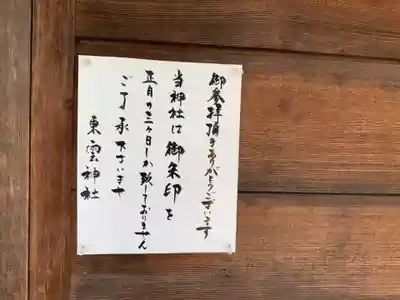 御参拝頂きありがとうございます
当神社は御朱印を
正月の三ヶ日しか致しておりません
ご了承下さいませ
東雲神社